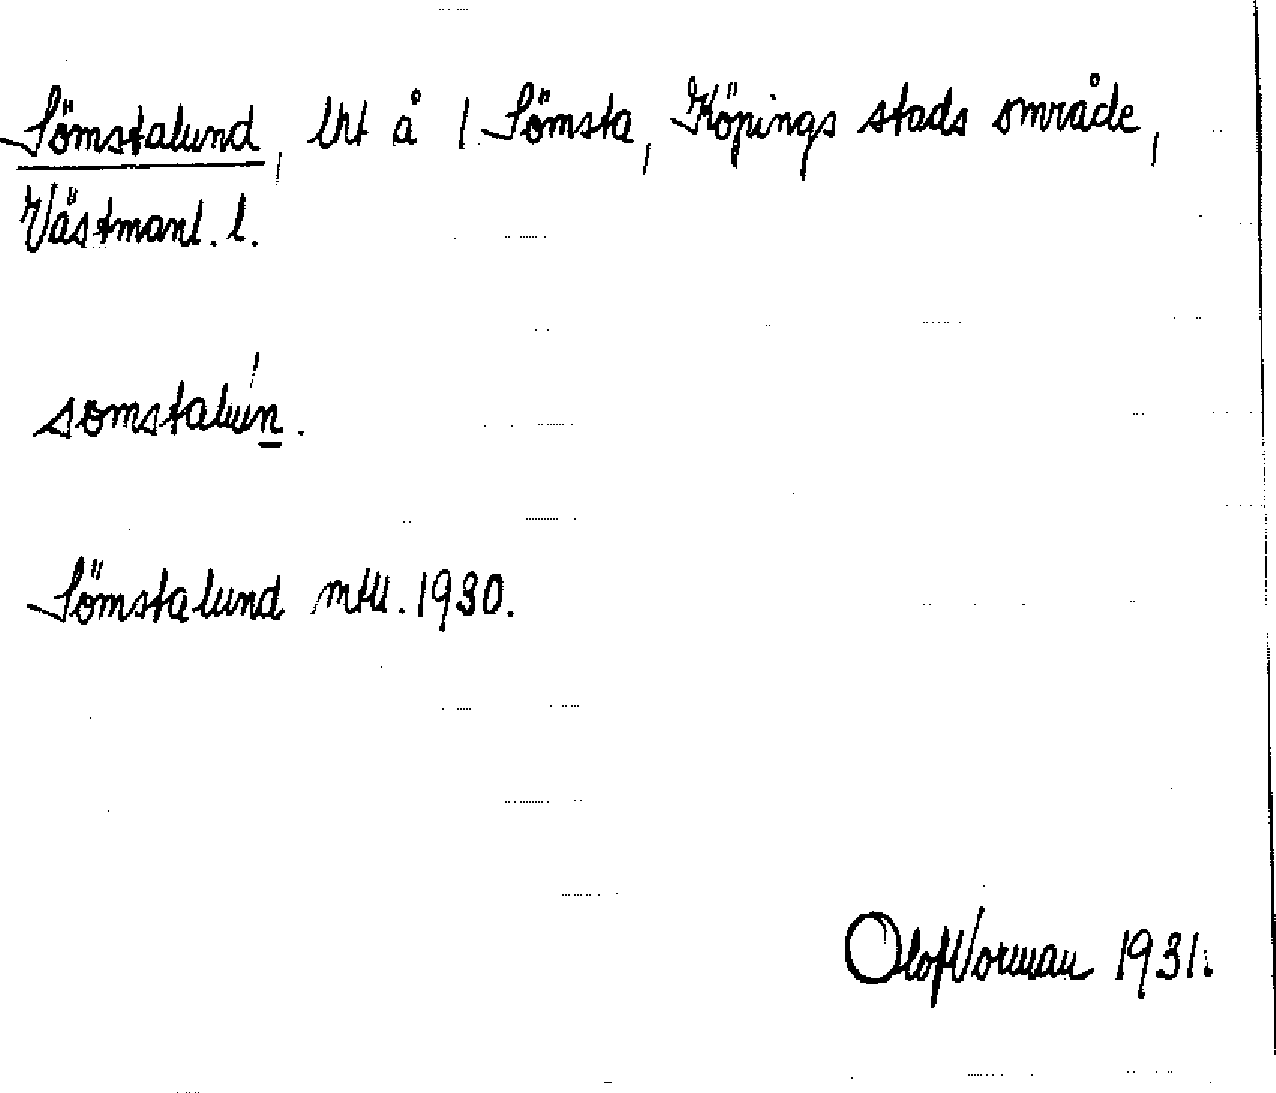 Sömstalund, lht å 1 Sömsta, Köpings stads område,
Västmanl. l.
sömstalún.
Sömstalund mtll. 1930.
Olof Norman 1931.